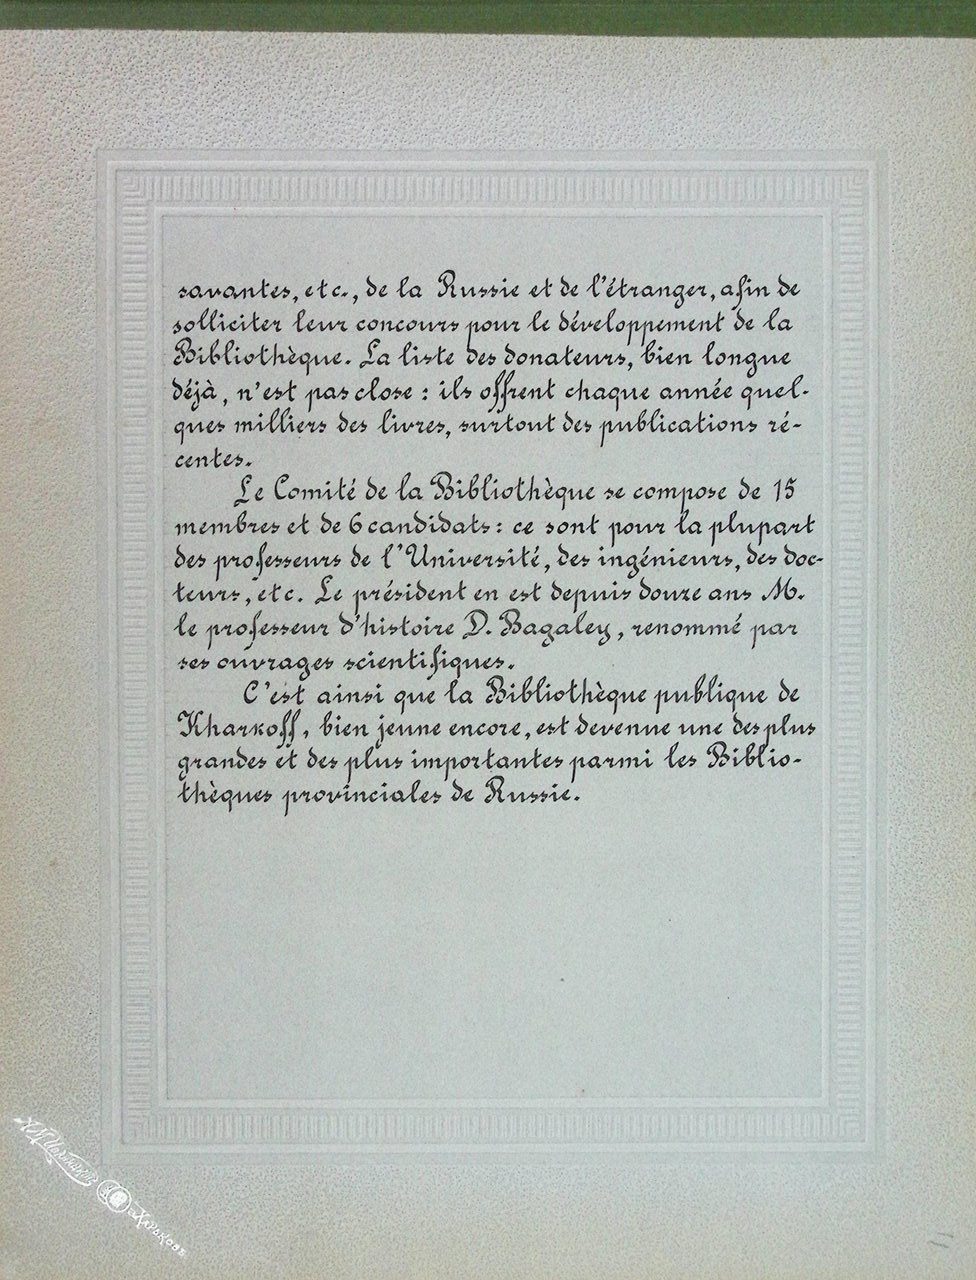 savantes, etc., de la Russie et de l'étranger, afin de
solliciter leur concours pour le développement de la
Bibliothèque. La liste des donateurs, bien longue
déjà, n'est pas close : ils offrent chaque année quel-
ques milliers des livres, surtout des publications ré-
centes.
Le Comité de la Bibliothèque se compose de 15
membres et de 6 candidats : ce sont pour la plupart
des professeurs de l'Université, des ingénieurs, des doc-
teurs, etc. Le président en est depuis douze ans M.
le professeur d'histoire D. Bagaley, renommé par
ses ouvrages scientifiques.
C'est ainsi que la Bibliothèque publique de
Kharkoff, bien jeune encore, est devenue une des plus
grandes et des plus importantes parmi les Biblio-
thèques provinciales de Russie.
Харьковъ